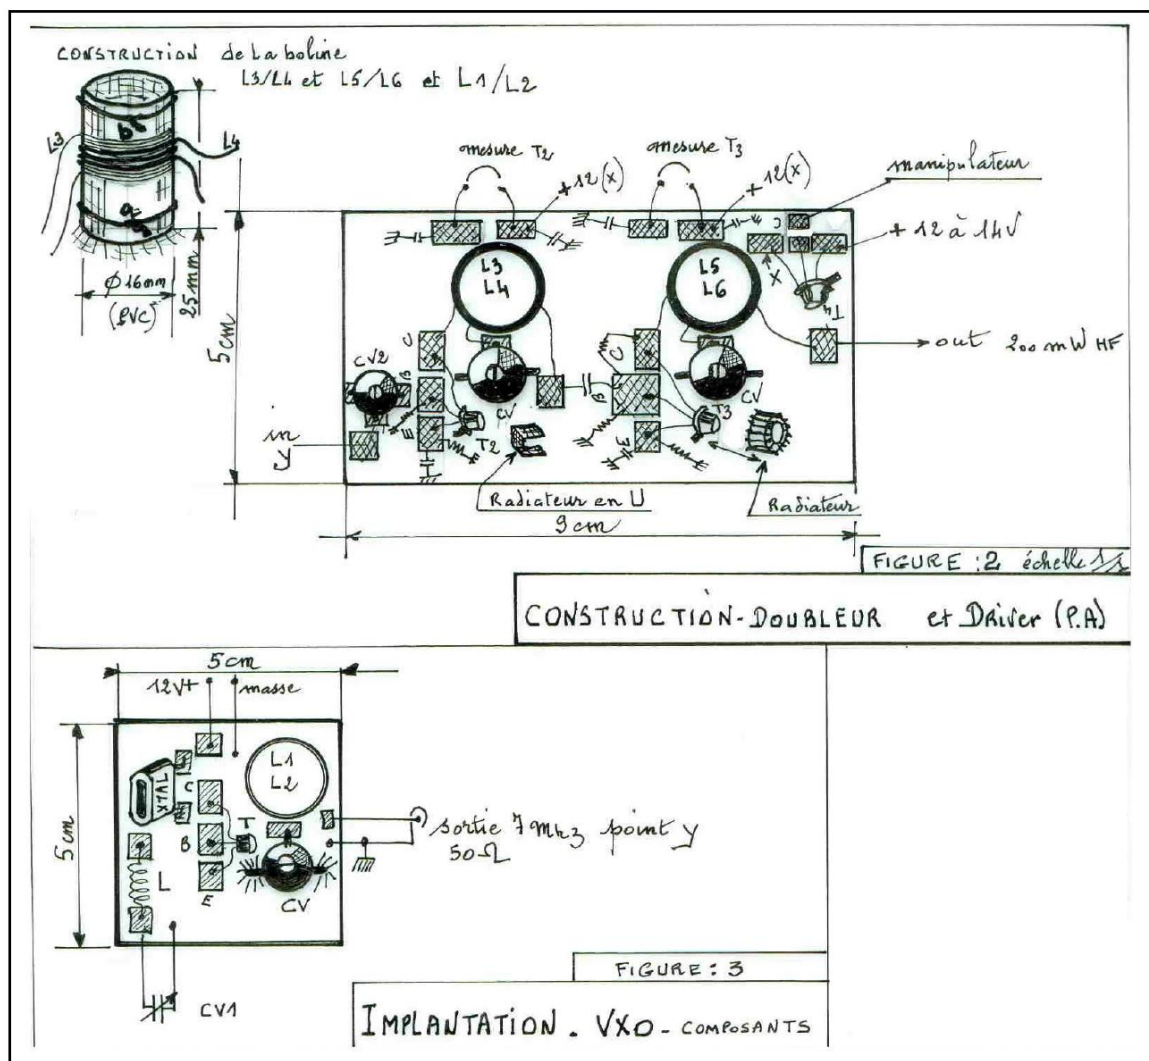 CONSTRUCTION de La boline
L3/L4 et L5/L6 et L1/L2
L3
L4
b
a
25mm
φ16mm
(PVC)
mesure T2
+12(X)
mesure T3
+12(X)
manipulateur
+ 12 à 14V
C
X
T4
L3
L4
L5
L6
5cm
CV2
C
B
E
T2
CV
C
B
E
T3
CV
out 200mW HF
in
y
Radiateur en U
Radiateur
9cm
FIGURE : 2 échelle 1/1
CONSTRUCTION-DOUBLEUR et Driver (P.A)
5cm
12V+
masse
5cm
XTAL
C
B
E
T
L
L1
L2
CV
sortie 7Mhz point y
50Ω
CV1
FIGURE : 3
IMPLANTATION . VXO - COMPOSANTS